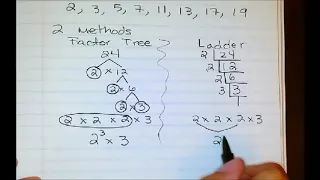 2, 3, 5, 7, 11, 13, 17, 19
2 Methods
Factor Tree
24
2 × 12
2 × 6
2 × 3
2 × 2 × 2 × 3
2³ × 3
Ladder
2 24
2 12
2 6
3 3
1
2 × 2 × 2 × 3
2